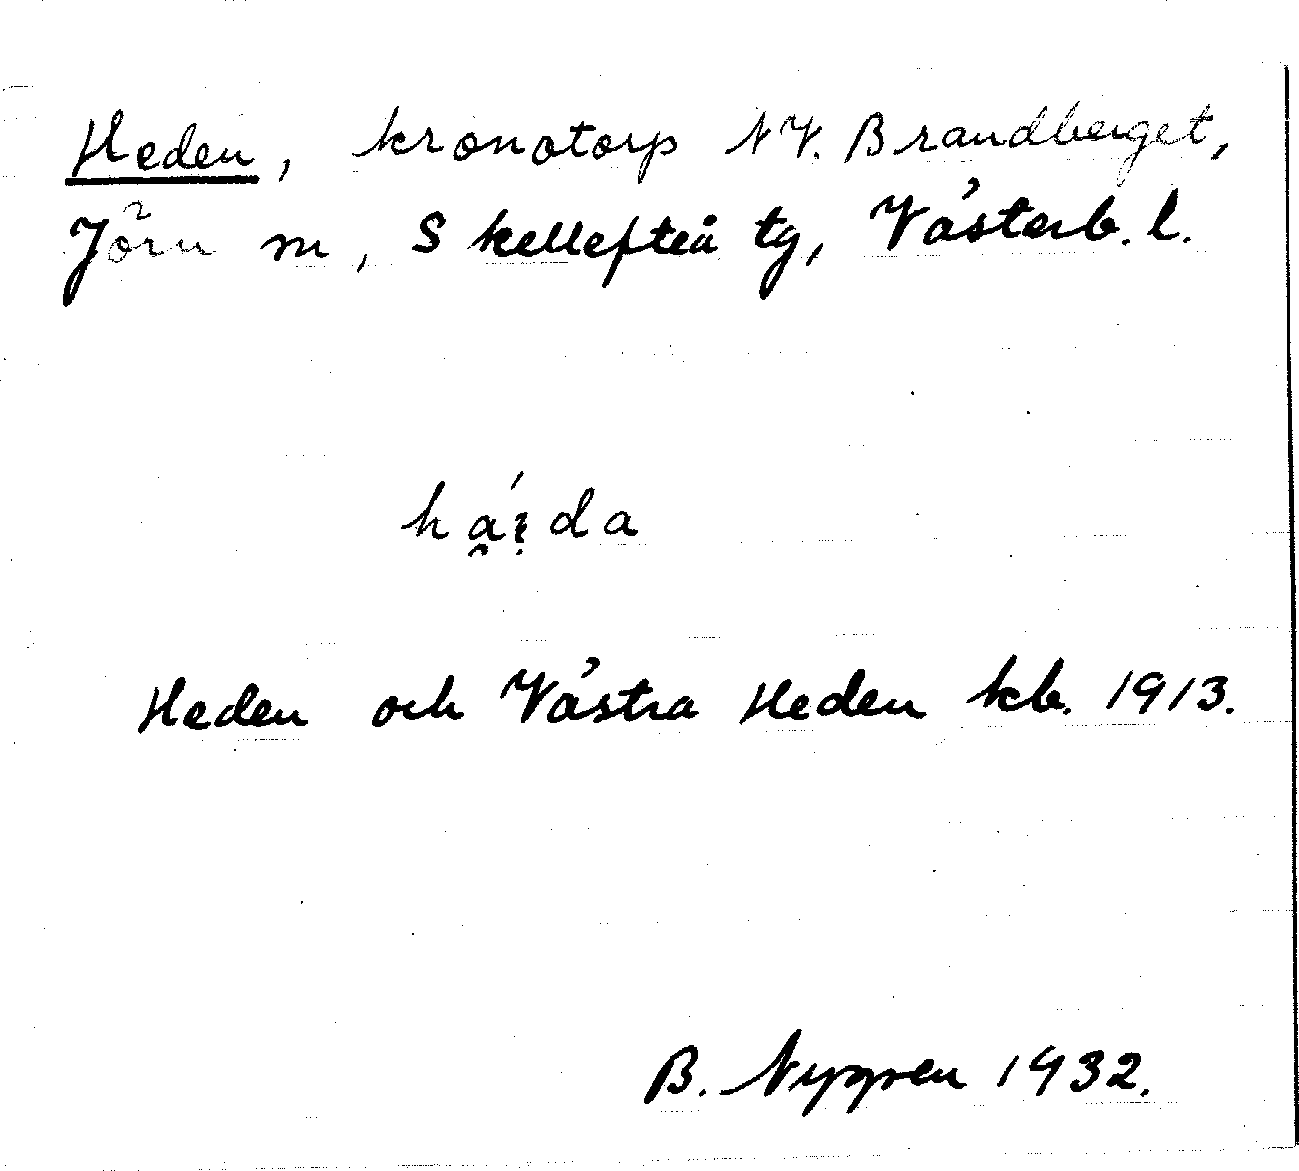 Heden, kronotorp NV. Brandberget,
Jörn sn, Skellefteå tg, Västerb. l.
Heden och Västra Heden kb. 1913.
B. Nygren 1932.